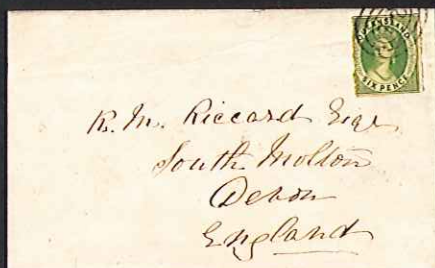 QUEENSLAND
SIX PENCE
R. M. Riccard Esqr
South Molton
Devon
England